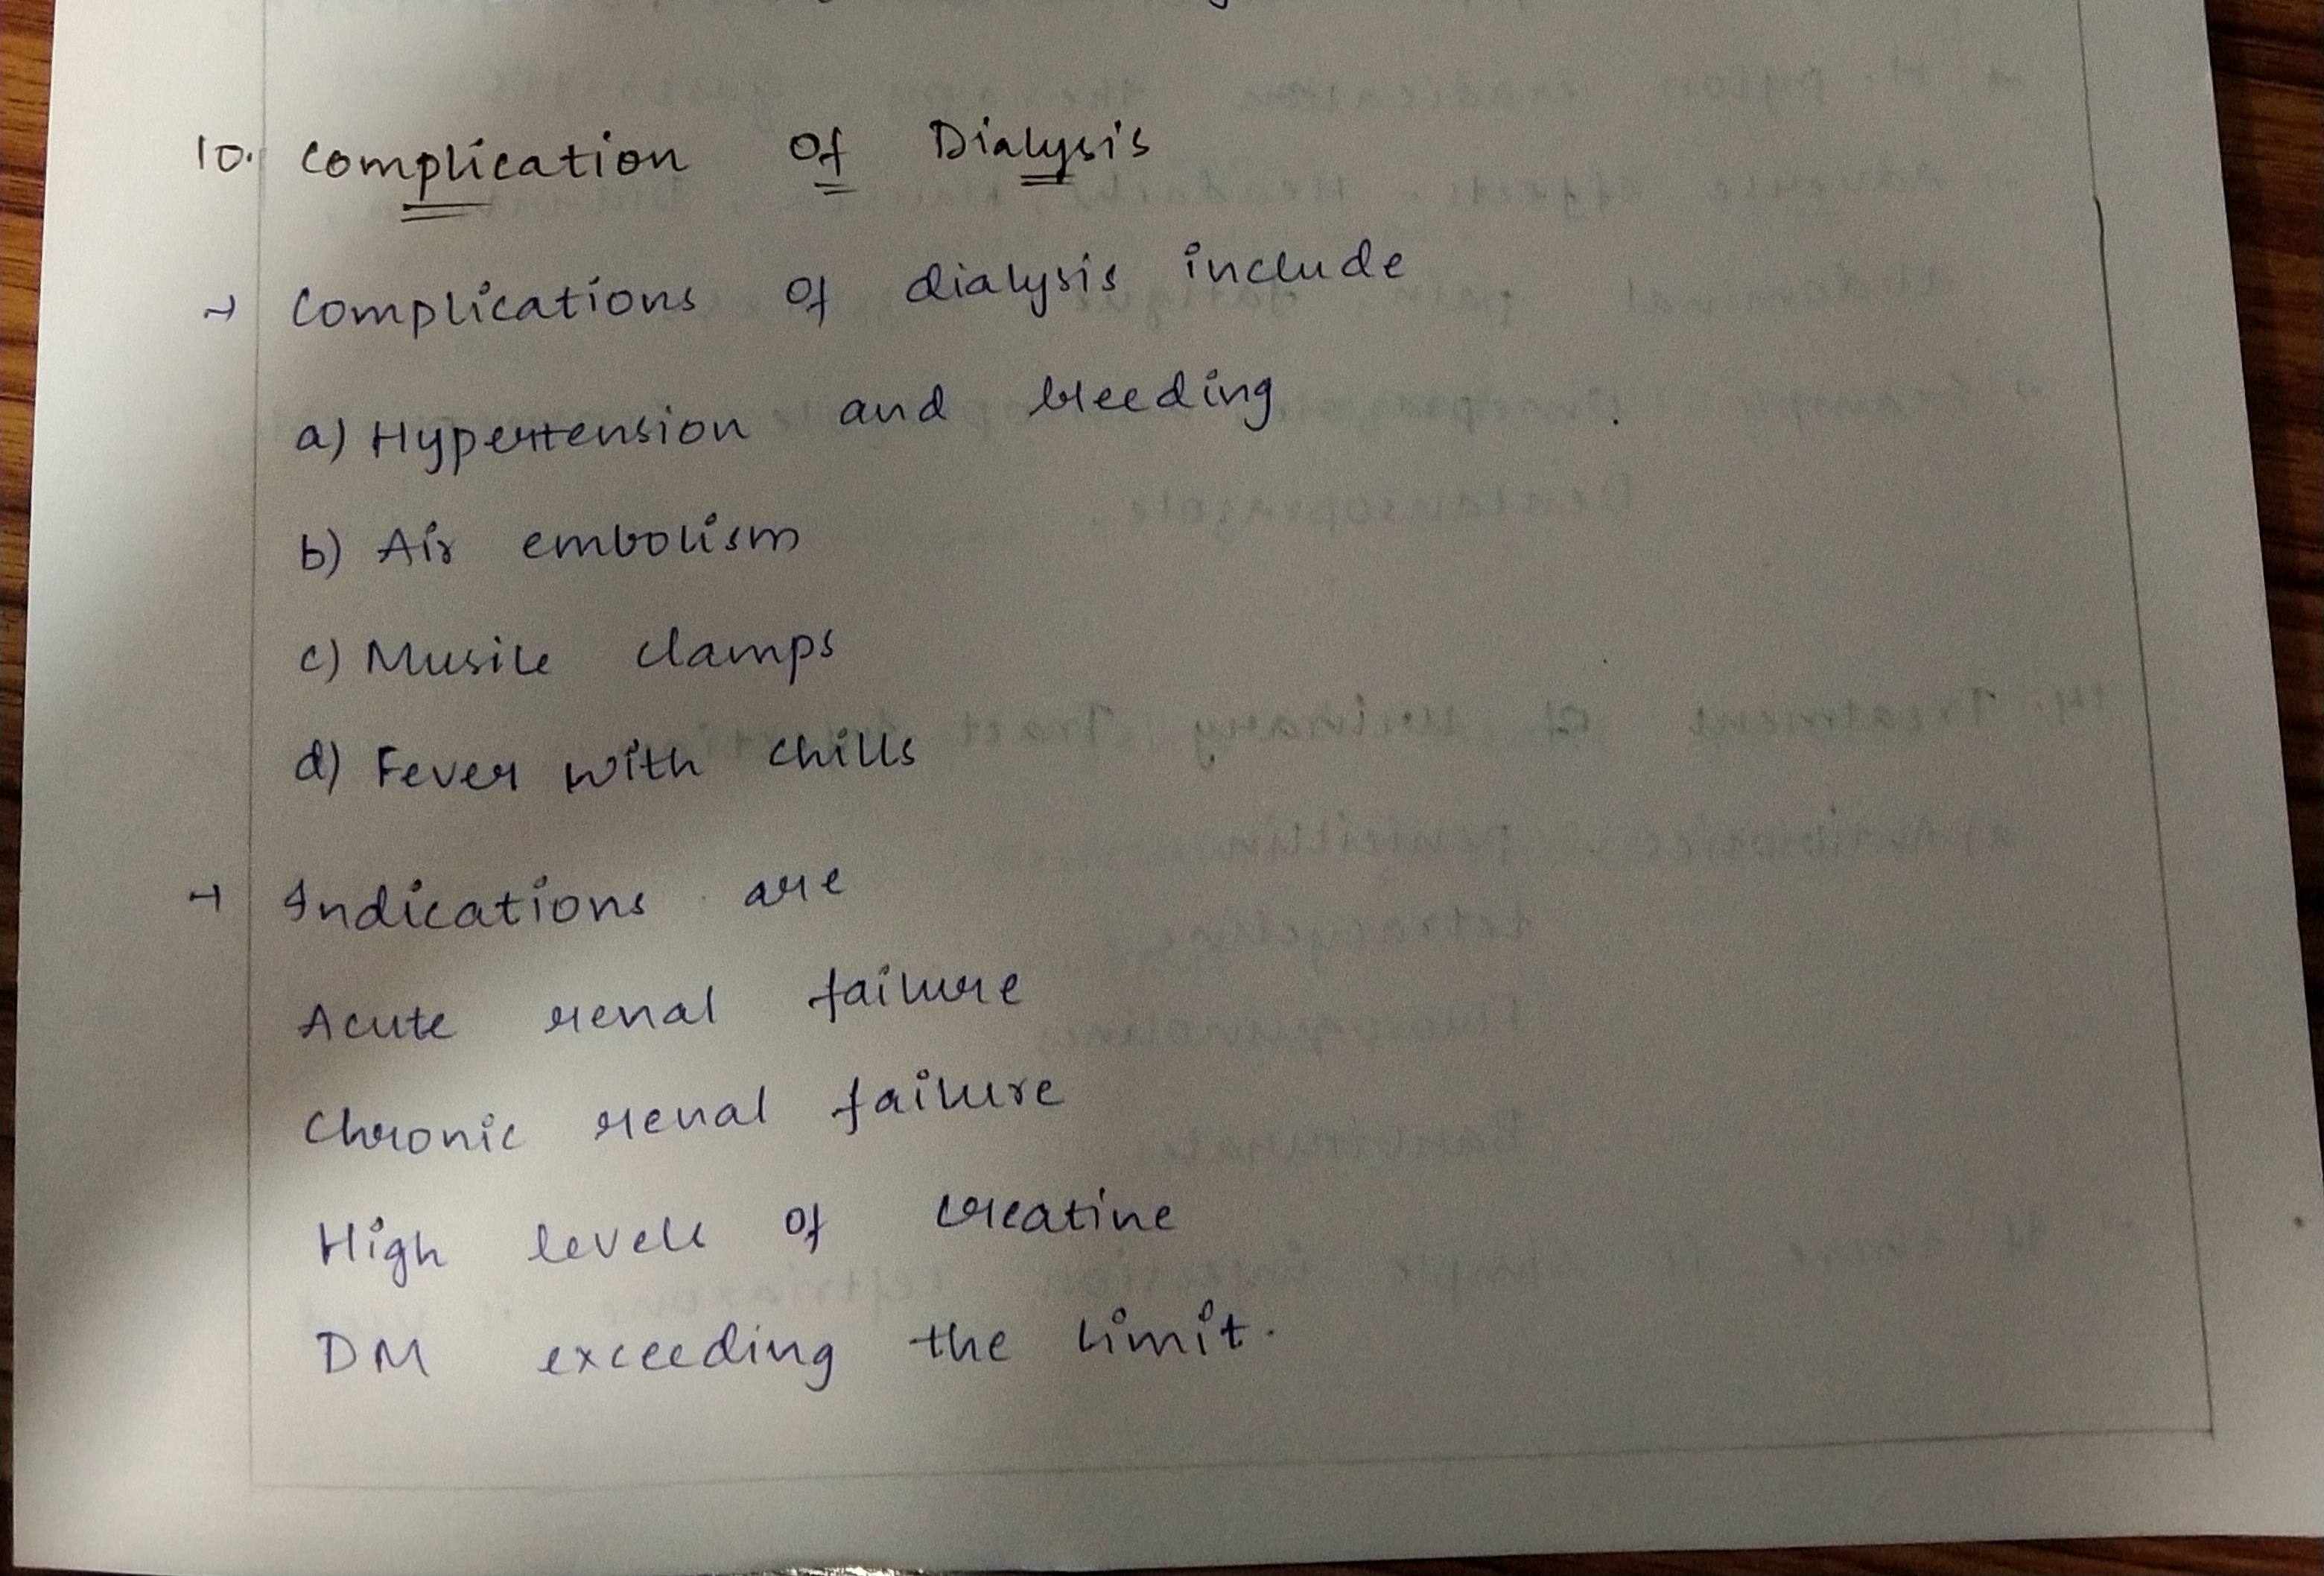 10. Complication Of Dialysis
→ Complications of dialysis include
a) Hypertension and bleeding
b) Air embolism
c) Musile clamps
d) Fever with chills
→ Indications are
Acute renal failure
Chronic renal failure
High levels of creatine
DM exceeding the limit.